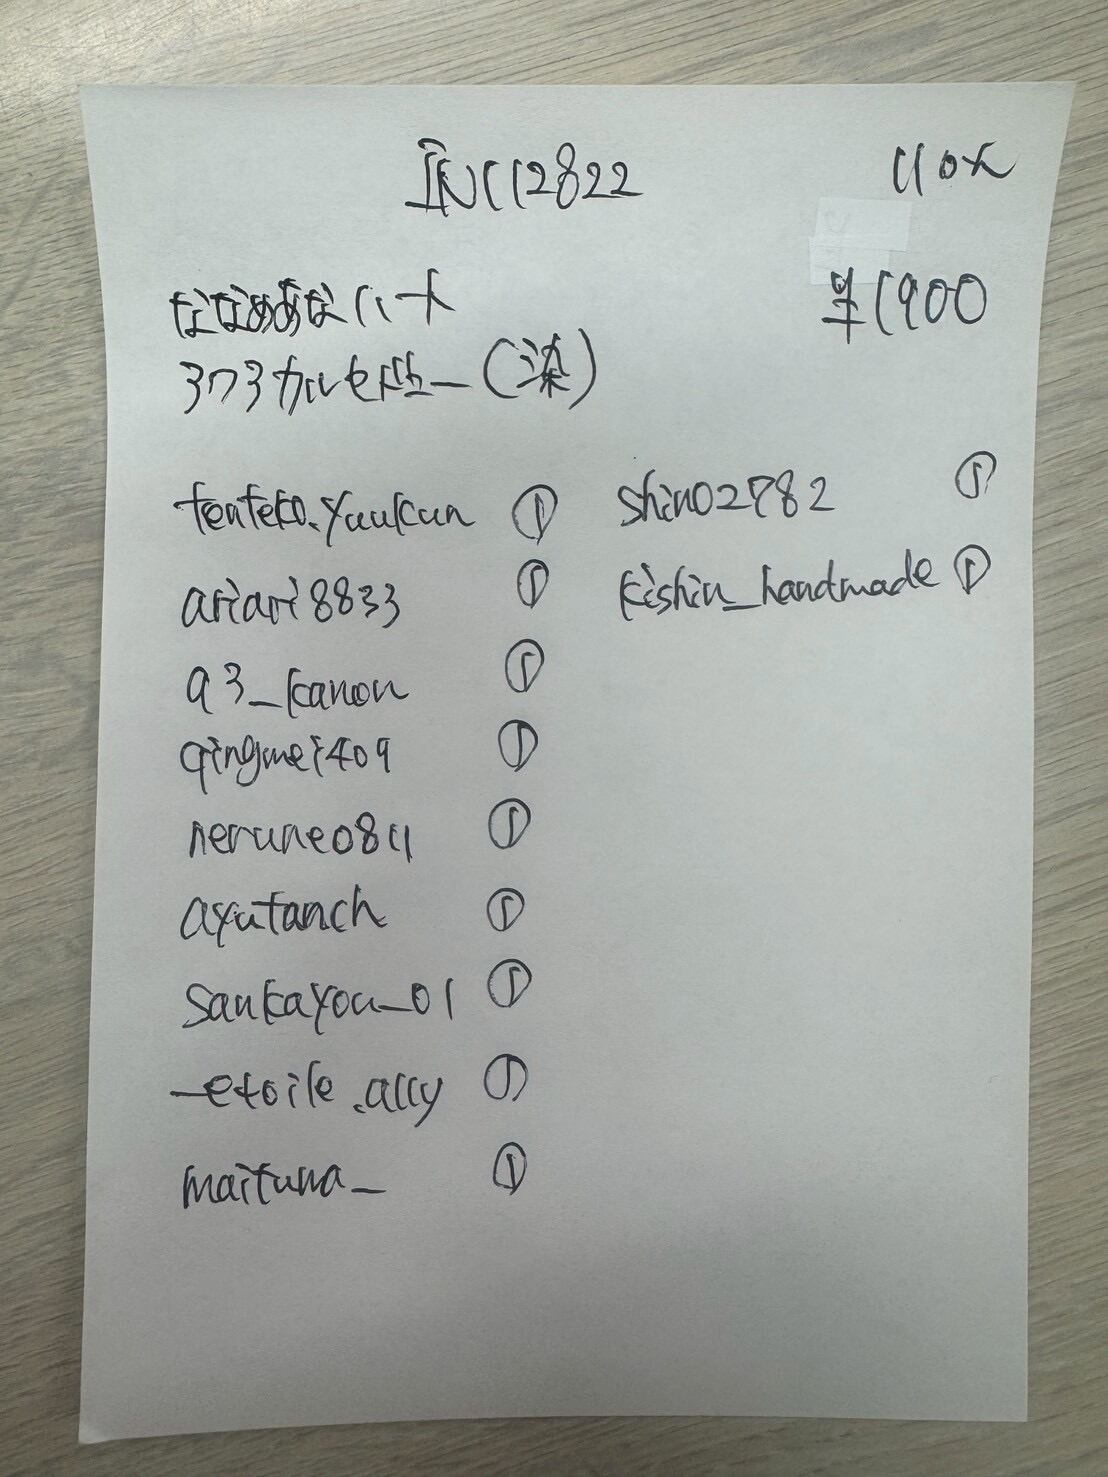 INC112822
110ヶ
ななめあなハート
¥1900
373カルセドニー(染)
tenteko.yuukun ①
ariari8833 ①
93_kanon ①
qingmei409 ①
nerune0811 ①
ayutanch ①
sankayou_01 ①
_etoile.ally ①
maituna_ ①
shino2782 ①
kishin_handmade ①